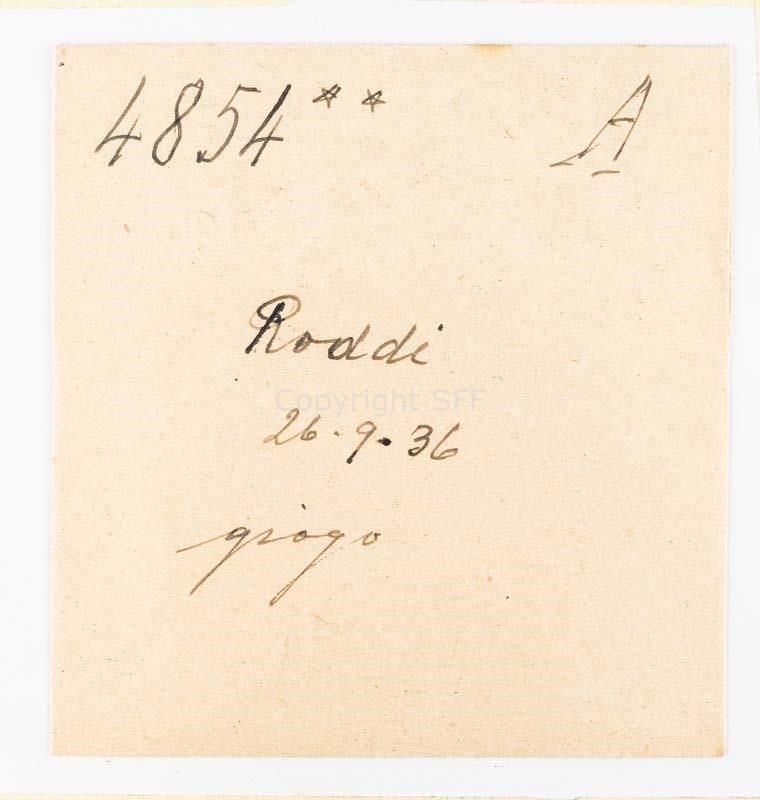 4854** A
Roddi
Copyright SFF
26.9.36
grogo